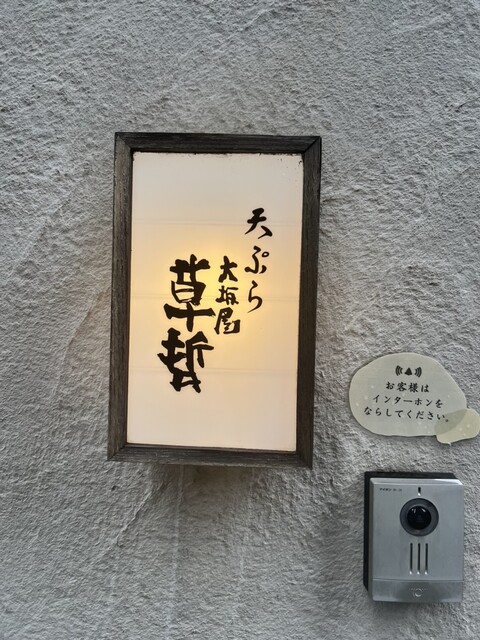 天ぷら
大坂屋
草哲
お客様は
インターホンを
ならしてください。